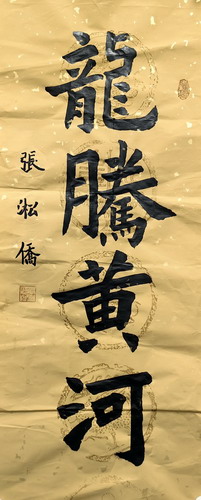 龍騰黄河
張淞僑